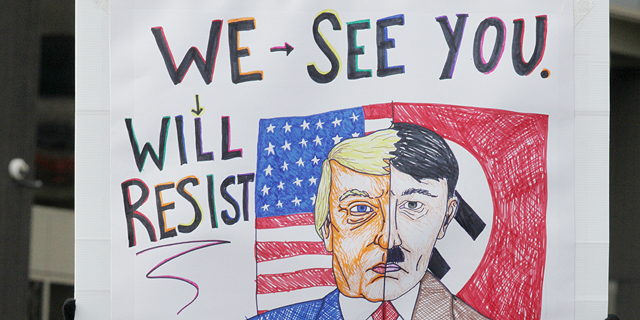 WE → SEE YOU.
WILL
RESIST